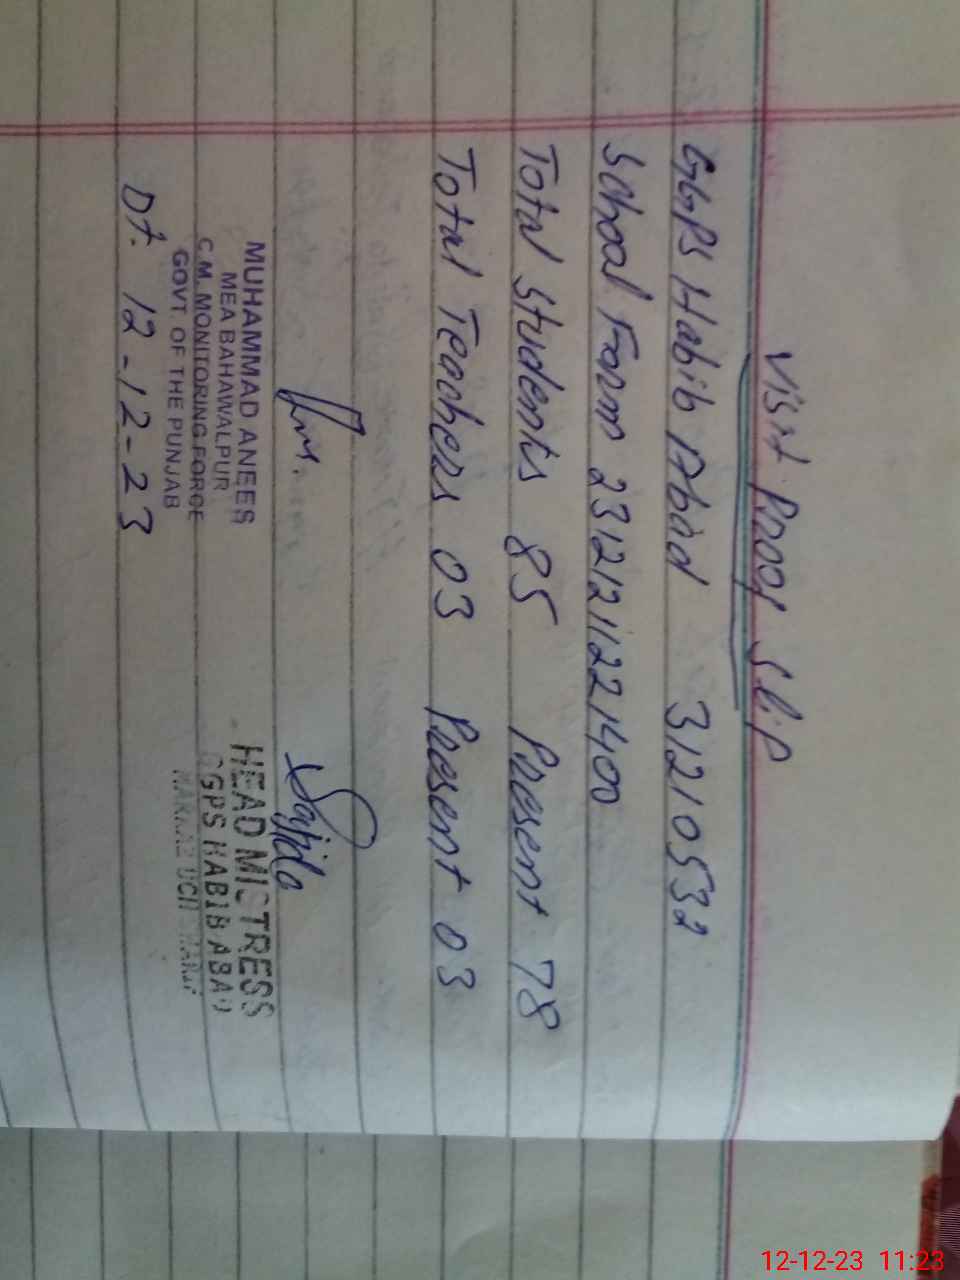 Visit Proof Slip
GGPS Habib Abad 31210532
School Form 23121211221400
Total Students 85 Present 78
Total Teachers 03 Present 03
Sajida
MUHAMMAD ANEES
MEA BAHAWALPUR
C.M. MONITORING FORCE
GOVT. OF THE PUNJAB
HEAD MISTRESS
GGPS HABIB ABAD
MARKAZ UCH
Dt. 12-12-23
12-12-23 11:23